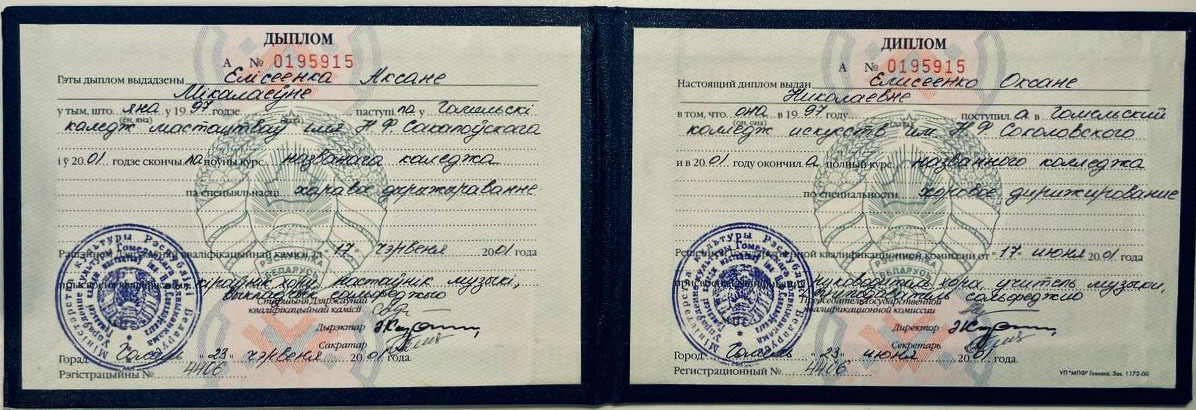 ДЫПЛОМ
А № 0195915
Гэты дыплом выдадзены Елісеенка Аксане
Мікалаеўне
у тым, што яна у 1997 годзе паступіла у Гомельскі
(ён, яна)
каледж мастацтваў імя Н Ф Сакалоўскага
і ў 2001 годзе скончыла поўны курс названага каледжа
па спецыяльнасці харавое дырыжыраванне
кваліфікацыйнай камісіі ад 17 чэрвеня 2001 года
кіраўнік хору, настаўнік музыкі,
Старшыня Дзяржаўнай
кваліфікацыйнай камісіі
Дырэктар
Сакратар
Горад Гомель "23" чэрвеня 2001 года.
Рэгістрацыйны № 4406
ДИПЛОМ
А № 0195915
Настоящий диплом выдан Елисеенко Оксане
Николаевне
в том, что она в 1997 году поступила в Гомельский
(он, она)
колледж искусств им. Н Ф Соколовского
и в 2001 году окончила полный курс названного колледжа
по специальности хоровое дирижирование
квалификационной комиссии от 17 июня 2001 года
руководитель хора, учитель музыки,
сольфеджио
Председатель Государственной
квалификационной комиссии
Директор
Секретарь
Город Гомель "23" июня 2001 года.
Регистрационный № 4406